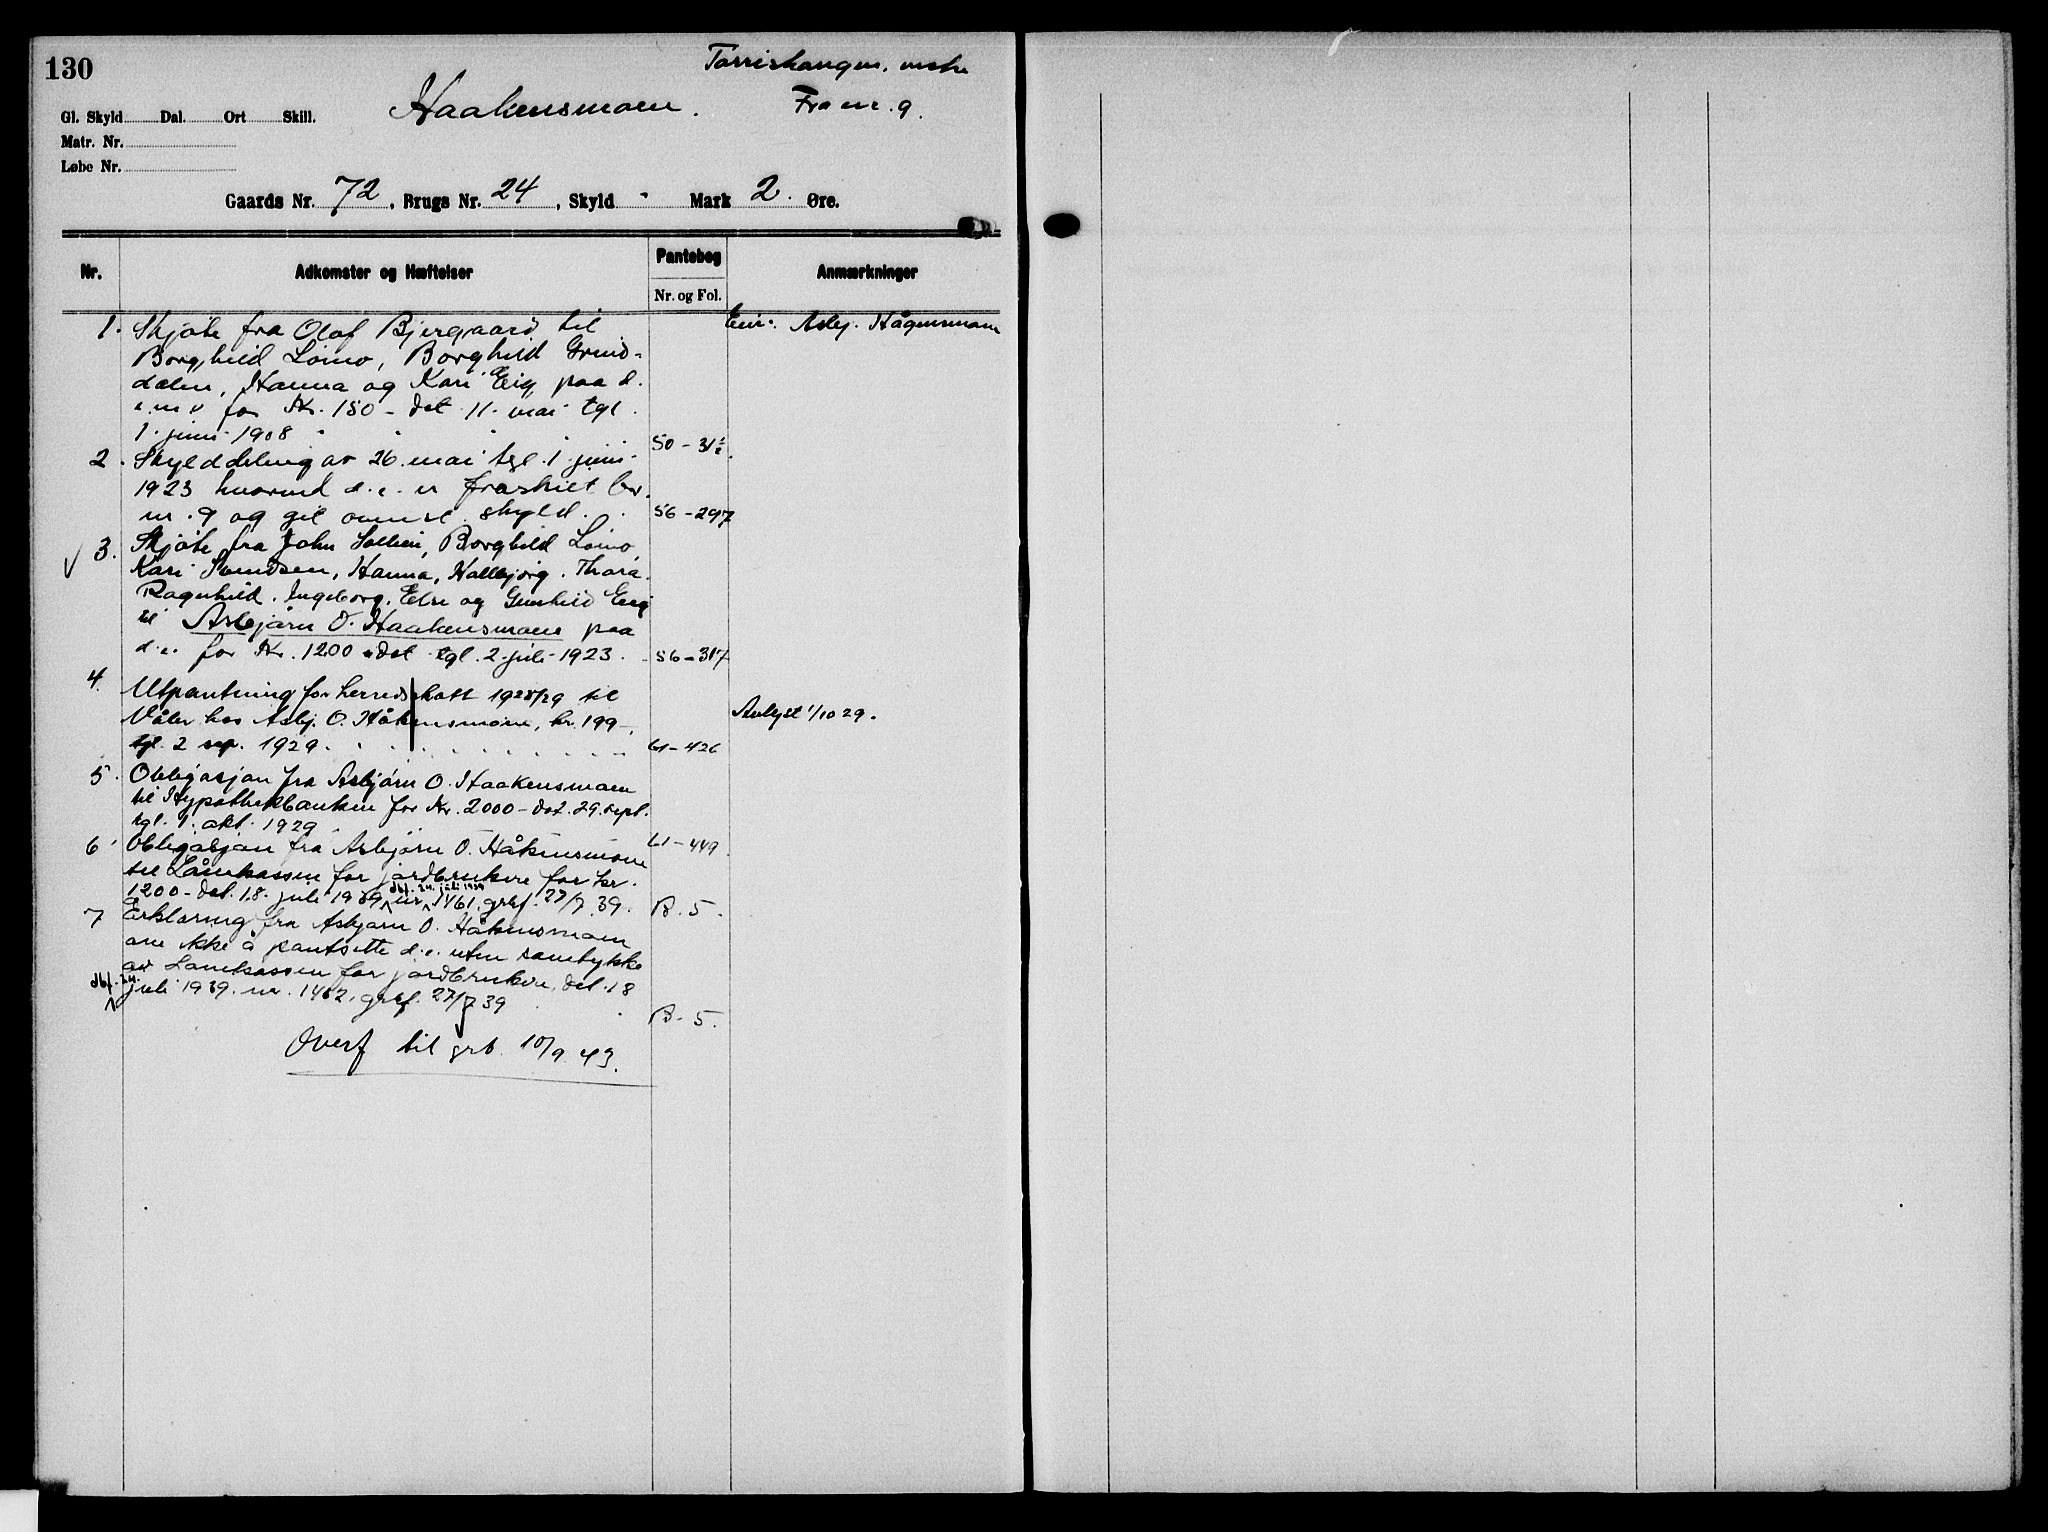 130
Gl. Skyld Dal. Ort Skill.
Haakensmoen.
Fra nr. 9.
Matr. Nr.
Løbe Nr.
Gaards Nr. 72, Brugs Nr. 24, Skyld " Mark 2. Øre.
Nr. Adkomster og Hæftelser Pantebog Anmærkninger
Nr. og Fol.
1. Skjøte fra Olaf Bjergaard til Asbj. Hågensmoen
Borghild Lömo, Borghild Grind-
dalen, Hanna og Kari Eig paa d.
for Kr. 150 - dat 11. mai tgl.
1. juni 1908 50-31
2. Skylddeling av 26. mai tgl. 1. juni
1923 hvorved d.e. er fraskilt br.
nr. 9 og git ovenst. skyld. 56-297
3. Skjøte fra John Sollien, Borghild Lömo
Kari Svendsen, Hanna, Hallbjørg. Thora.
Ragnhild. Ingeborg. Else og Gunhild Eig
til Asbjørn O. Haakensmoen paa
d.e. for Kr. 1200 dat tgl. 2. juli 1923. 56-317
4. Utpantning for herredsskatt 1928/29 til
Våler hos Asbj. O. Håkensmoen, kr. 199-, Avlyst 1/10 29.
tgl. 2 sep. 1929. 61-426
5. Obligasjon fra Asbjørn O. Haakensmoen
til Hypothekbanken for Kr. 2000 - dat. 29. sept.
tgl. 1. okt. 1929 61-449
6. Obligasjon fra Asbjørn O. Håkensmoen
til Lånekassen for jordbrukere for kr.
1200- dat. 18. juli 1939 dbf. 24. juli 1939 nr. 1461. grbf. 27/7 39. B. 5.
7 Erklæring fra Asbjørn O. Håkensmoen
om ikke å pantsette d.e. uten samtykke
av Lånekassen for jordbrukere, dat. 18
dbf. 24. juli 1939. nr. 1462, grbf. 27/7 39 B. 5.
Overf til grb. 10/9 43.